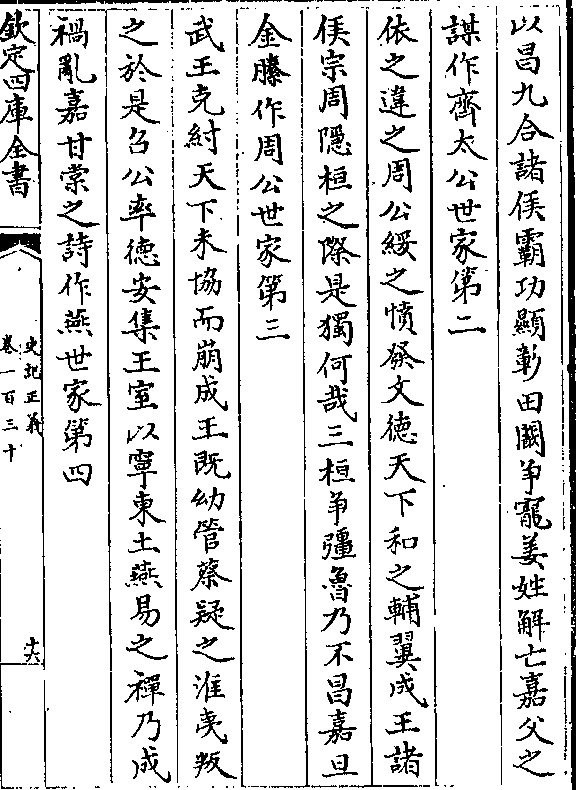 以昌九合諸侯霸功顯彰田闞争寵姜姓解亡嘉父之
謀作齊太公世家第二
依之違之周公綏之憤發文德天下和之輔翼成王諸
侯宗周隱桓之際是獨何哉三桓争彊魯乃不昌嘉旦
金縢作周公世家第三
武王克紂天下未協而崩成王既幼管蔡疑之淮夷叛
之於是召公率德安集王室以寧東土燕易之禪乃成
禍亂嘉甘棠之詩作燕世家第四
欽定四庫全書
史記正義
卷一百三十
十六